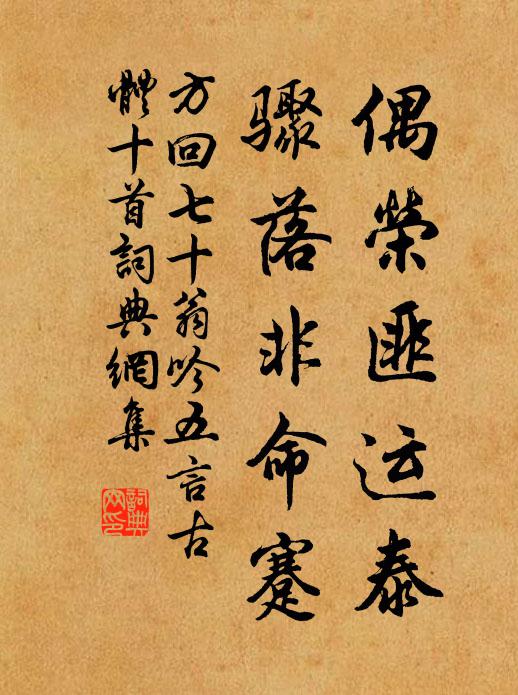 偶榮匪运泰
驟落非命蹇
方回七十翁吟五言古
體十首詞典網集
詞典网印